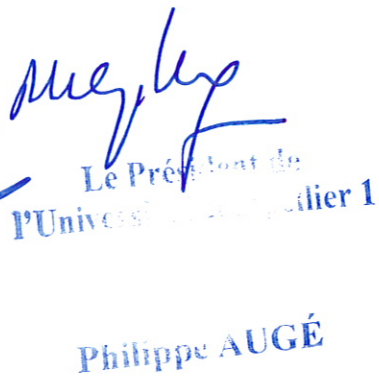 Le Président de
l'Université Montpellier 1
Philippe AUGÉ